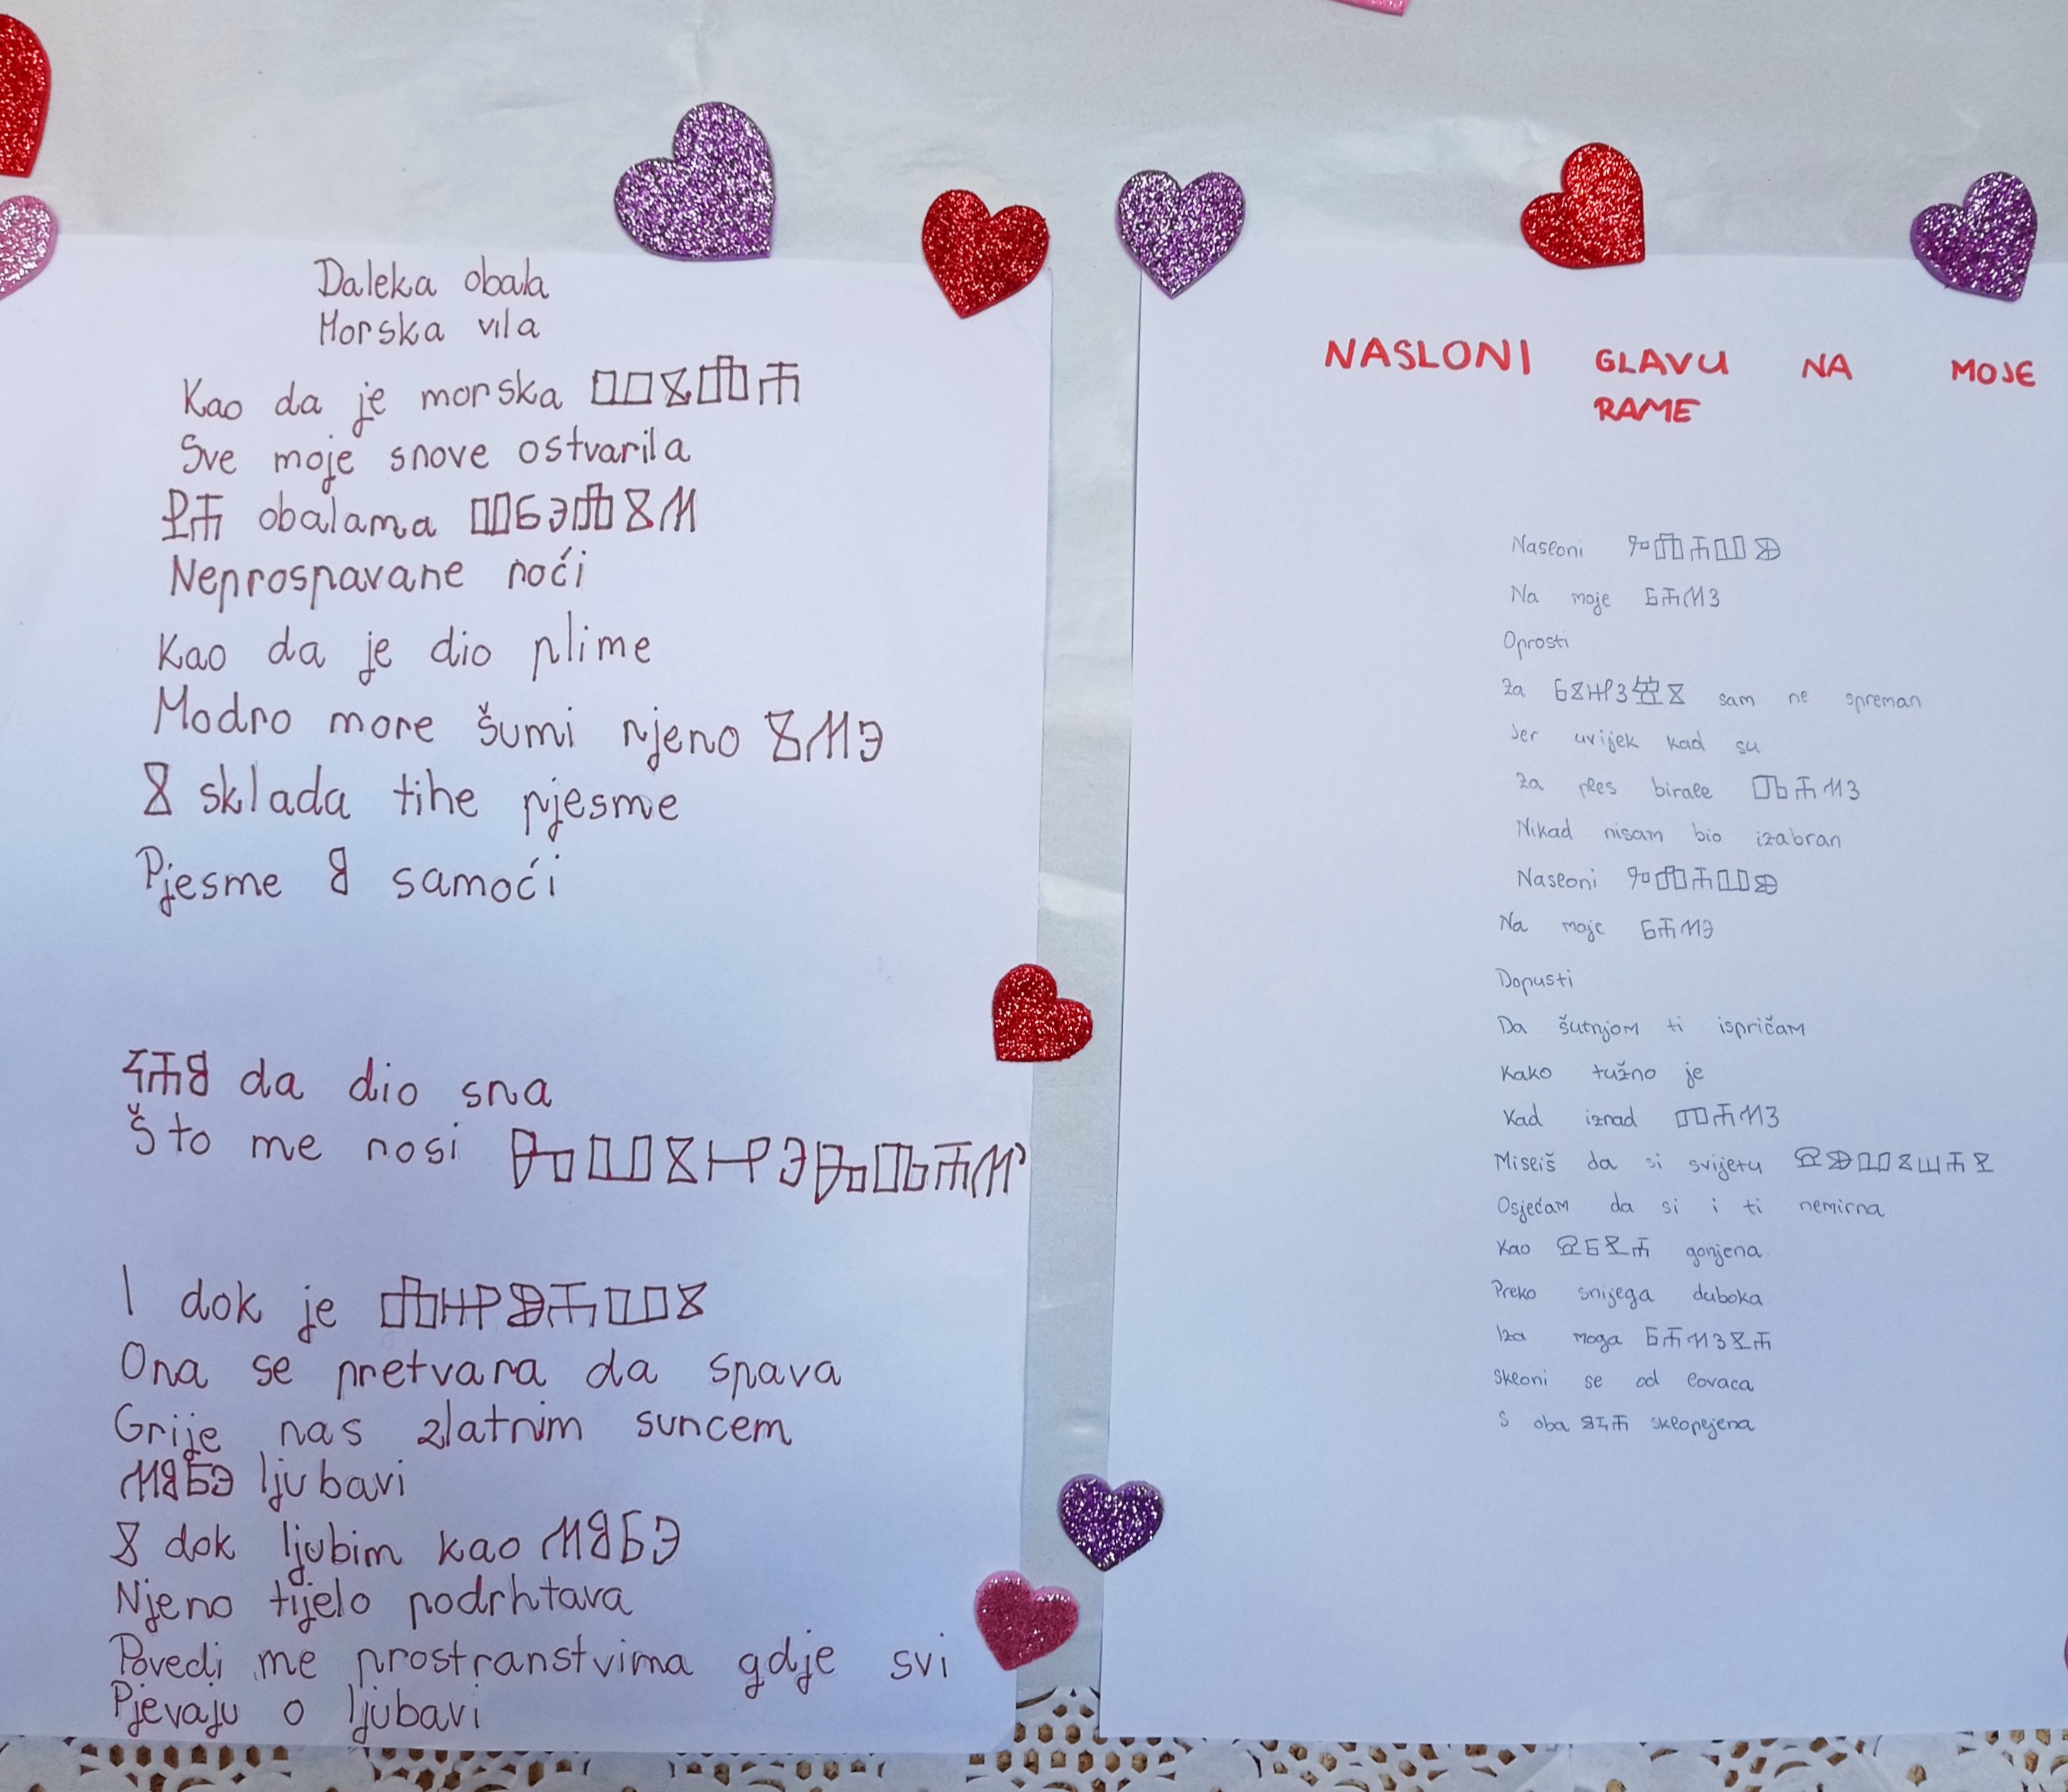 Daleka obala
Morska vila
Kao da je morska ⰲⰻⰾⰰ
Sve moje snove ostvarila
ⱀⰰ obalama ⰲⱃⰵⰾⰻⰿ
Neprospavane noći
Kao da je dio plime
Modro more šumi njeno ⰻⰿⰵ
ⰻ sklada tihe pjesme
Pjesme ⱁ samoći
ⰽⰰⱁ da dio sna
Što me nosi ⰸⰲⰻⰼⰵⰸⰴⰰⰿ
I dok je ⰾⰼⱆⰰⰲⰻ
Ona se pretvara da spava
Grije nas zlatnim suncem
ⰿⱁⱃⰵ ljubavi
ⰻ dok ljubim kao ⰿⱁⱃⰵ
Njeno tijelo podrhtava
Povedi me prostranstvima gdje svi
Pjevaju o ljubavi
NASLONI GLAVU NA MOJE
RAME
Nasloni ⰳⰾⰰⰲⱆ
Na moje ⱃⰰⰿⰵ
Oprosti
Za ⱃⰻⰼⰵⱍⰻ sam ne spreman
Jer uvijek kad su
Za ples birale ⰴⰰⰿⰵ
Nikad nisam bio izabran
Nasloni ⰳⰾⰰⰲⱆ
Na moje ⱃⰰⰿⰵ
Dopusti
Da šutnjom ti ispričam
Kako tužno je
Kad iznad ⱅⰰⰿⰵ
Misliš da si svijetu ⱄⱆⰲⰻⱎⰰⱀ
Osjećam da si i ti nemirna
Kao ⱄⱃⱀⰰ gonjena
Preko snijega duboka
Iza moga ⱃⰰⰿⰵⱀⰰ
Skloni se od lovaca
S oba ⱁⰽⰰ sklopljena